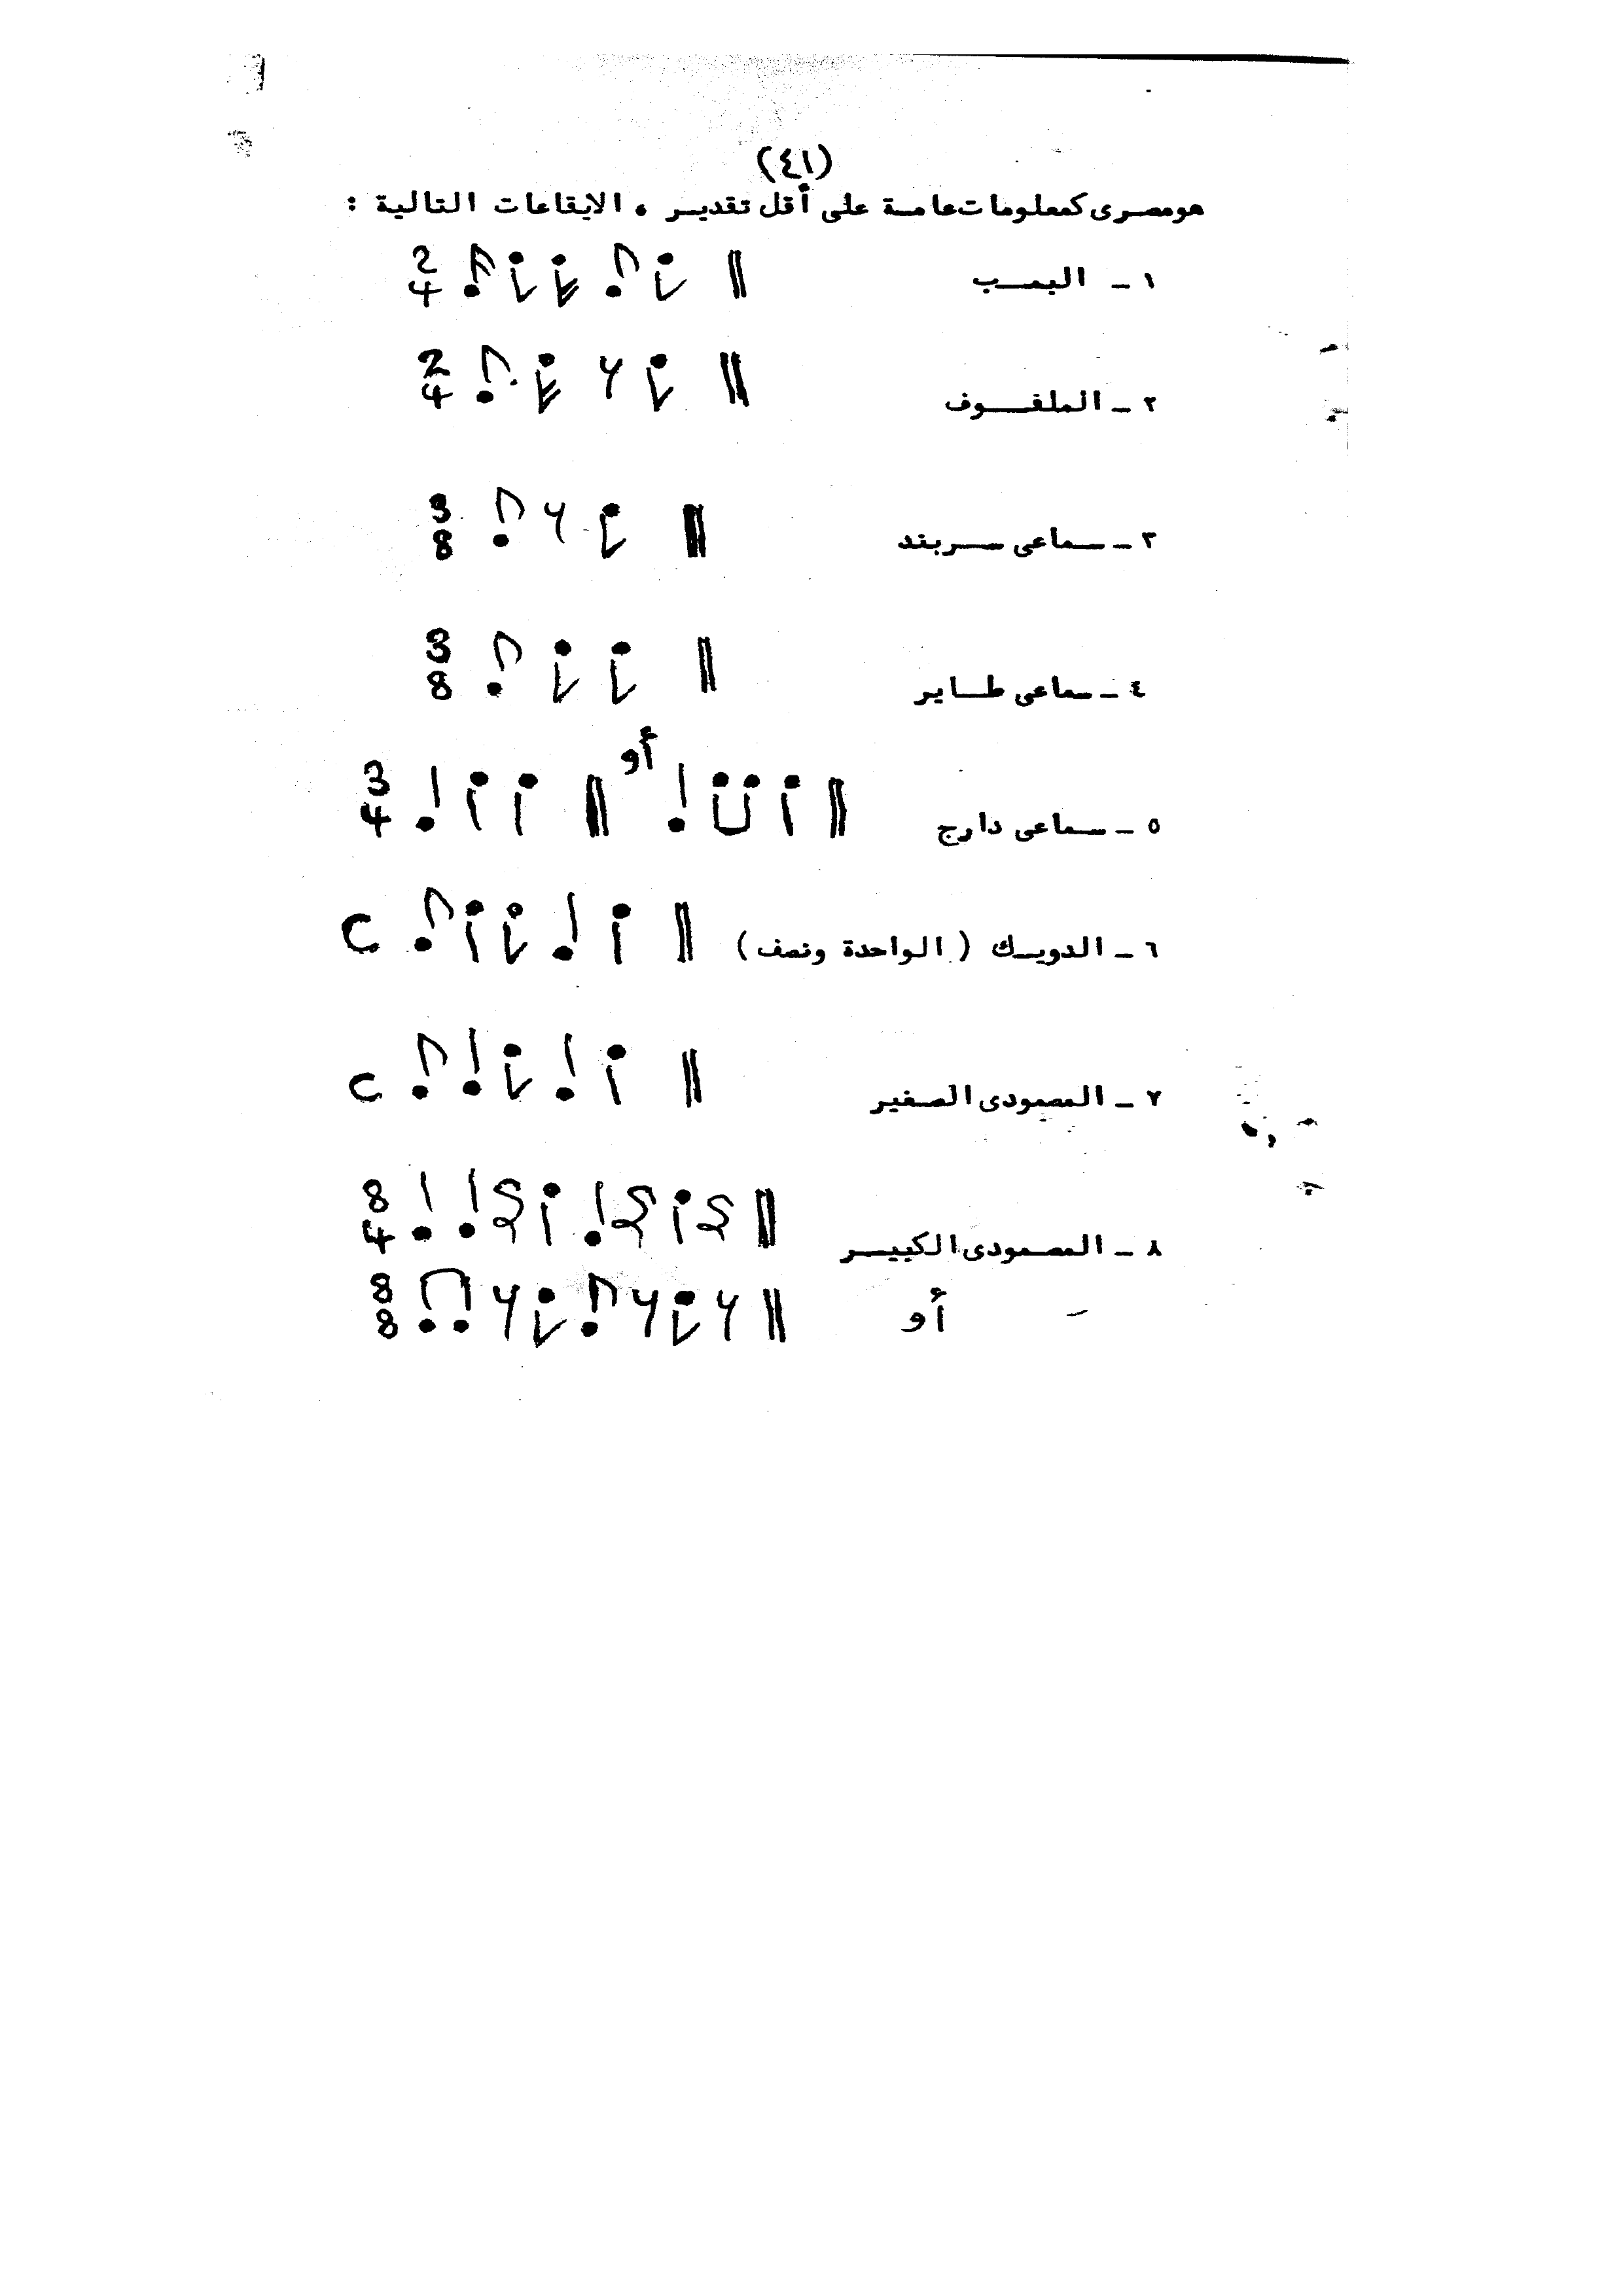 (٤١)
هو مصرى كمعلومات عامة على أقل تقدير ، الايقاعات التالية :
١ - البمب 2/4
٢ - الملفوف 2/4
٣ - سماعى سربند 3/8
٤ - سماعى طاير 3/8
٥ - سماعى دارج 3/4 أو
٦ - الدويك ( الواحدة ونصف ) C
٧ - المصمودى الصغير C
٨ - المصمودى الكبير 8/4
أو 8/8